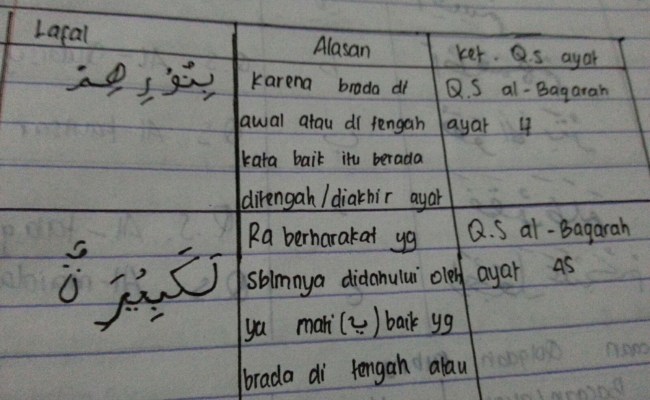 Lafal
Alasan
Ket. Q.S ayat
بِنُوْرِهِمْ
Karena brada di
awal atau di tengah
kata baik itu berada
ditengah/diakhir ayat
Q.S al-Baqarah
ayat 17
لَكَبِيْرَةٌ
Ra berharakat yg
sblmnya didahului oleh
ya mati (يْ) baik yg
brada di tengah atau
Q.S al-Baqarah
ayat 45